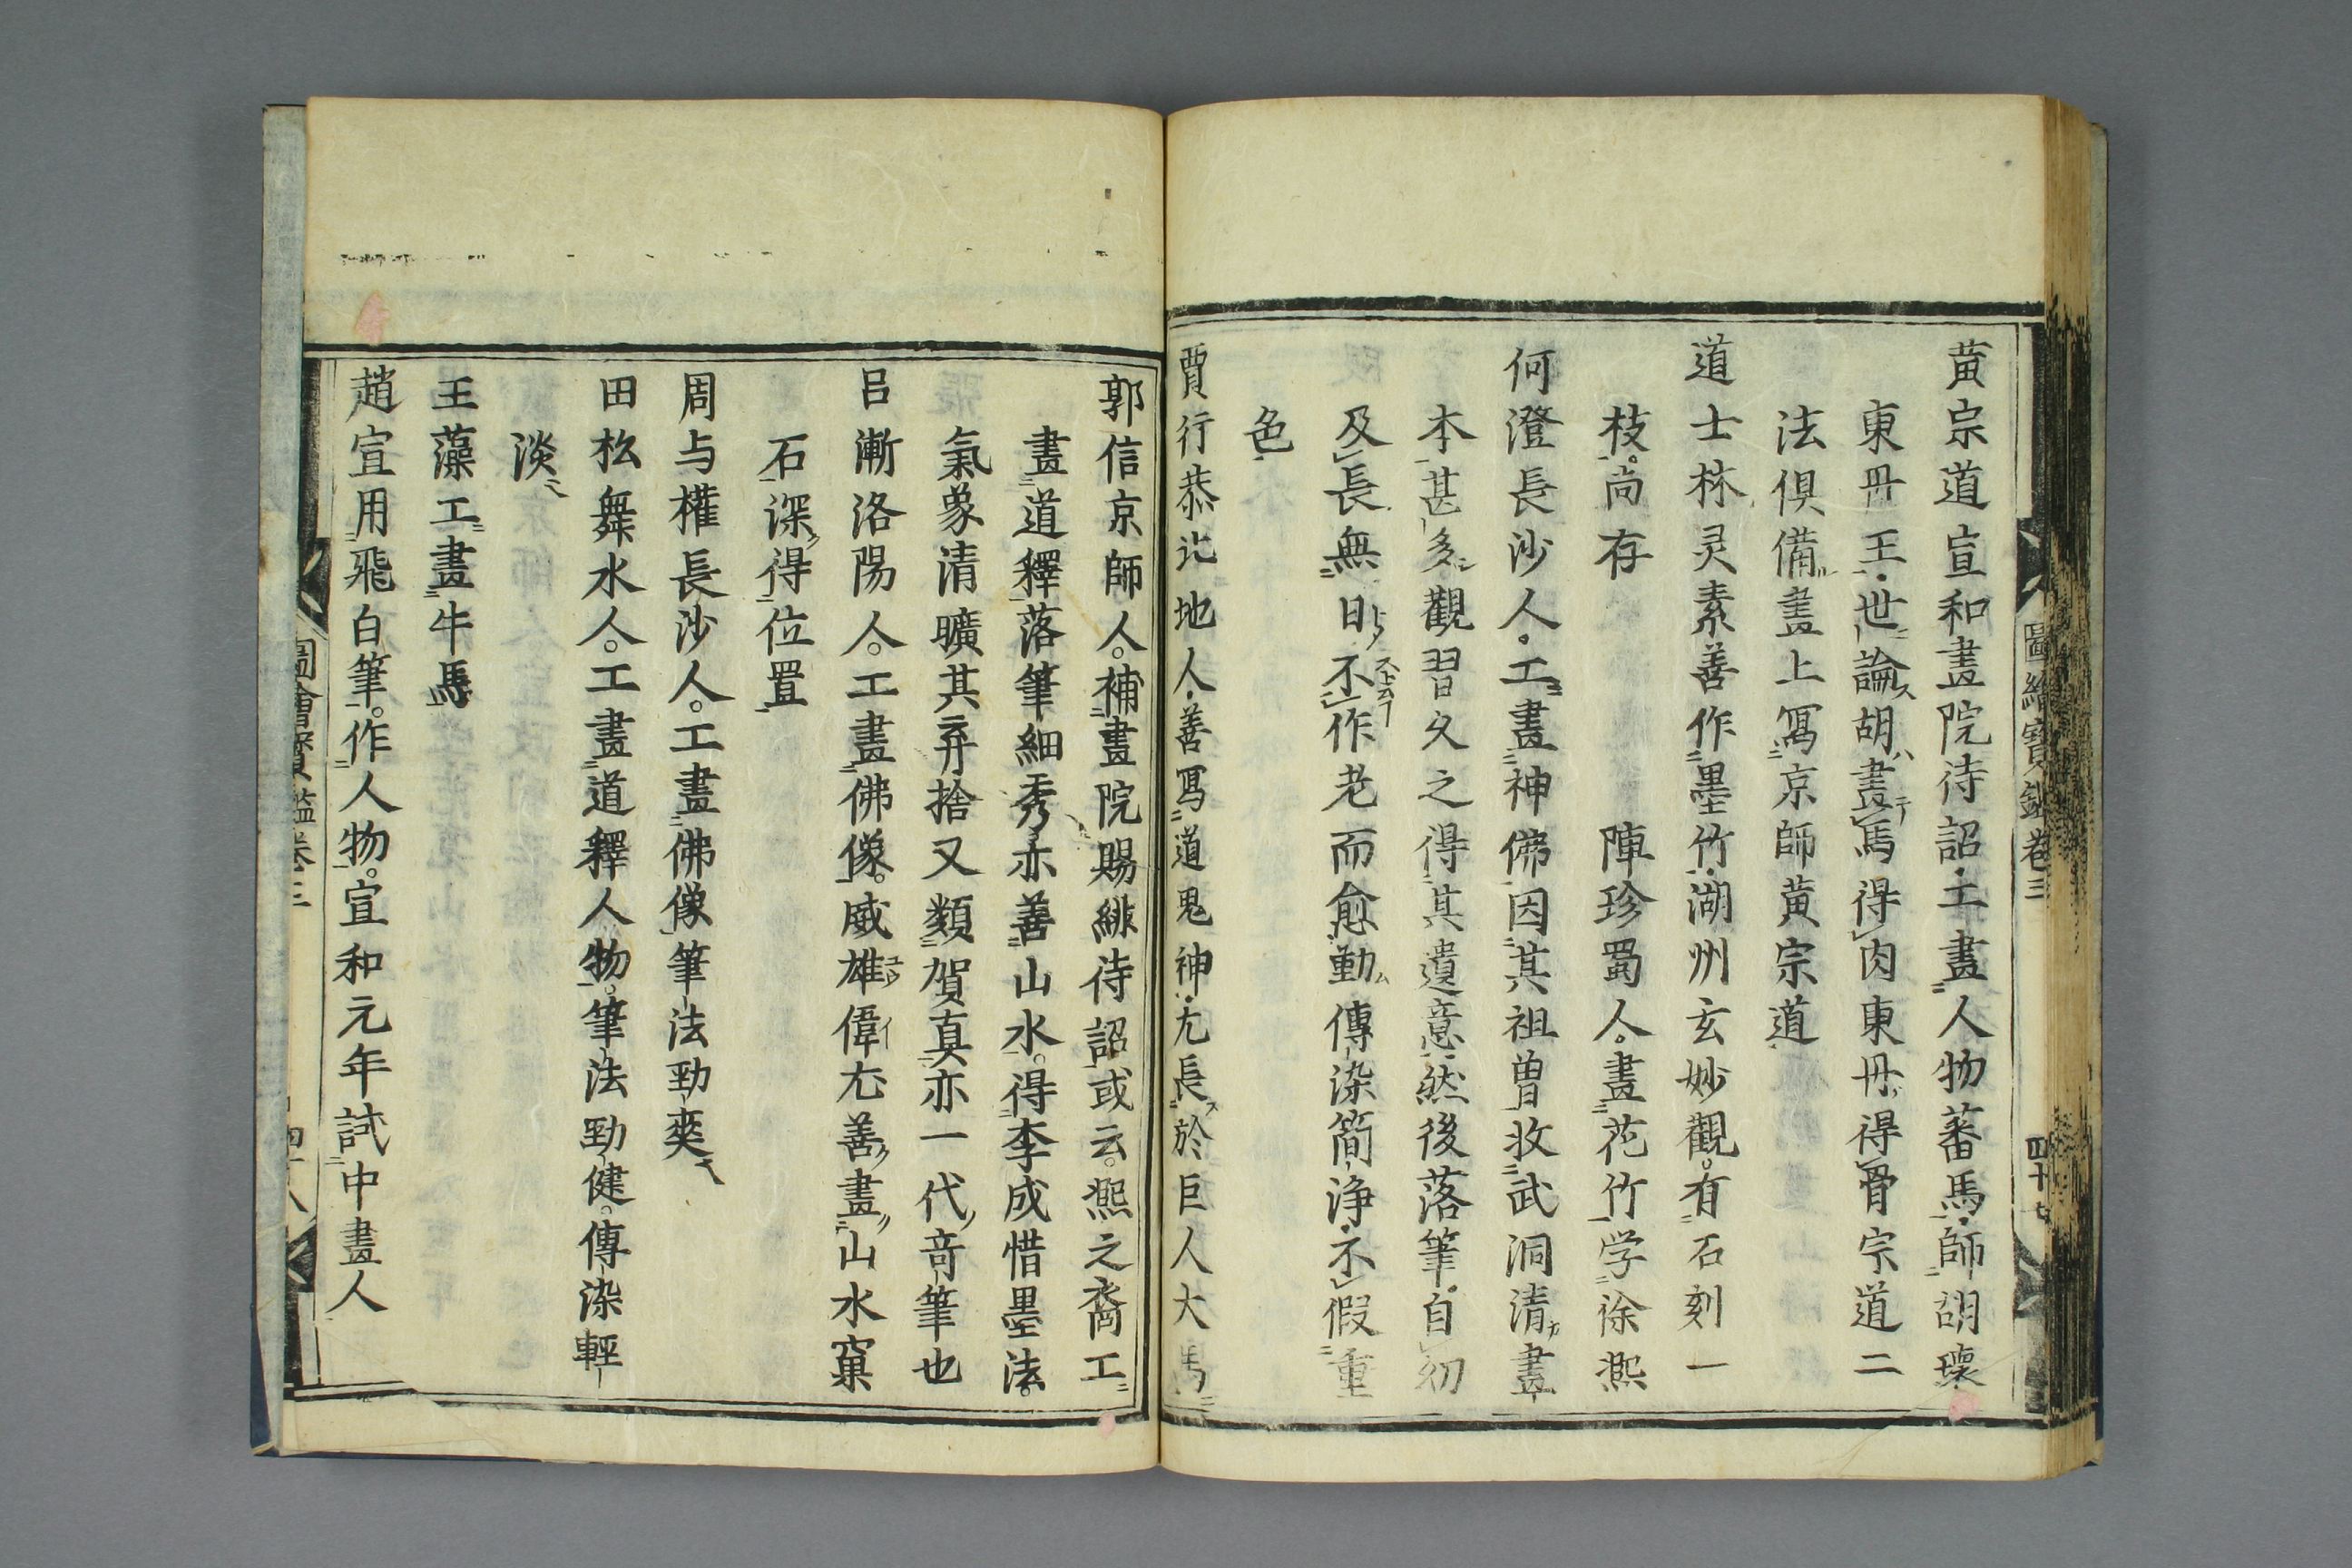 黄宗道宣和畫院待詔工畫人物蕃馬師胡瓌
東丹王世論胡畫馬得肉東丹得骨宗道二
法俱備畫上冩京師黄宗道
道士林灵素善作墨竹湖州玄妙觀有石刻一
枝尚存 陳珍蜀人畫花竹学徐熙
何澄長沙人工畫神佛因其祖曽收武洞清畫
本甚多觀習久之得其遺意然後落筆自幼
及長無日不作老而愈動傳染簡浄不假重
色
賈行恭北地人善冩道鬼神尤長於巨人大馬
圖繪寳鑑卷三 四十七
郭信京師人補畫院賜緋待詔或云熙之裔工
畫道釋落筆細秀亦善山水得李成惜墨法
氣象清曠其弃捨又類賀真亦一代竒筆也
吕漸洛陽人工畫佛像威雄偉尤善畫山水窠
石深得位置
周与權長沙人工畫佛像筆法勁爽
田松舞水人工畫道釋人物筆法勁健傳染輕
淡
王藻工畫牛馬
趙宣用飛白筆作人物宣和元年試中畫人
圖會寳鑑卷三 四十八